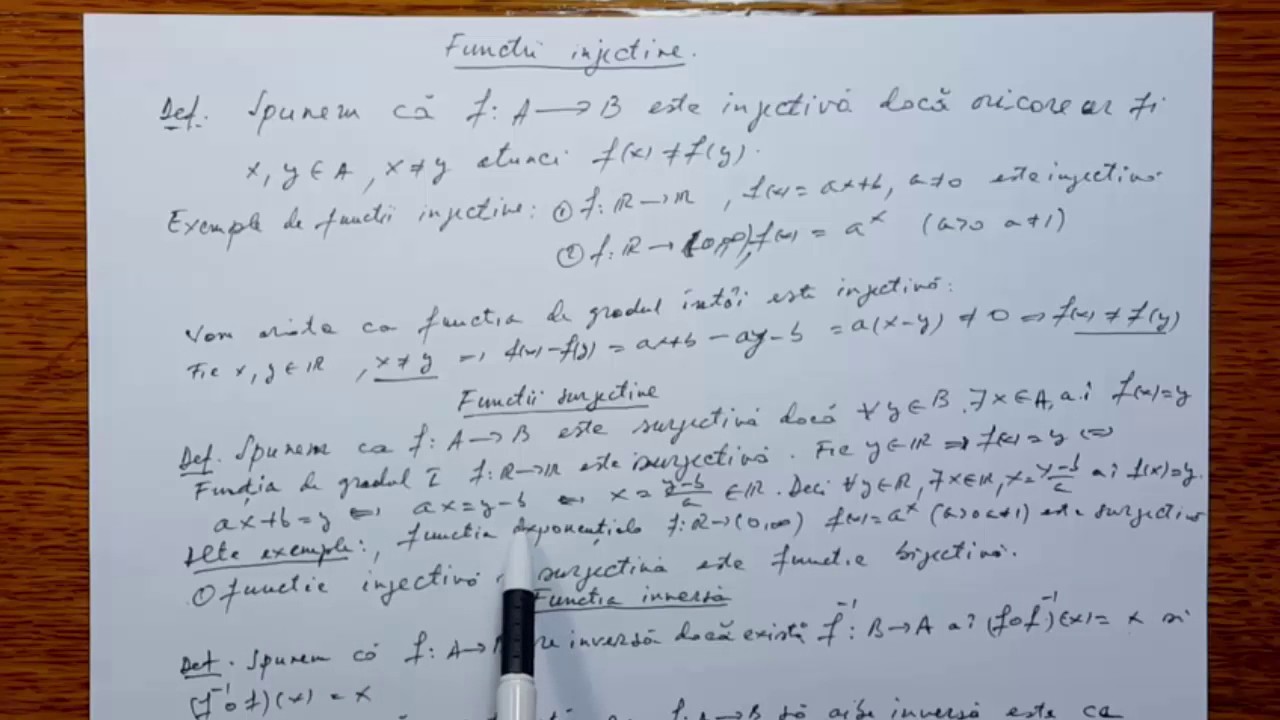 Functii injective.
Def. Spunem că f: A → B este injectivă dacă oricare ar fi
x, y ∈ A, x ≠ y atunci f(x) ≠ f(y).
Exemple de functii injective: ① f: R → R, f(x) = ax+b, a≠0 este injectiva
② f: R → (0,∞), f(x) = a^x (a>0 a≠1)
Vom arăta ca functia de gradul întâi este injectivă:
Fie x, y ∈ R, x ≠ y ⇒ f(x)-f(y) = ax+b-ay-b = a(x-y) ≠ 0 ⇒ f(x) ≠ f(y)
Functii surjective
Def. Spunem ca f: A → B este surjectivă dacă ∀ y ∈ B, ∃ x ∈ A, a.î f(x)=y
Funcția de gradul I f: R → R este surjectivă. Fie y ∈ R ⇒ f(x) = y ⇔
ax+b=y ⇔ ax=y-b ⇔ x = (y-b)/a ∈ R. Deci ∀ y ∈ R, ∃ x ∈ R, x = (y-b)/a aî f(x)=y.
Alte exemple:, functia exponențiala f: R → (0,∞) f(x)=a^x (a>0 a≠1) este surjectiva
O functie injectivă surjectivă este functie bijectivă.
Functia inversă
Def. Spunem că f: A → inversă dacă există f^-1: B → A aî (f∘f^-1)(x) = x si
(f^-1∘f)(x) = x
f: A → B să aibe inversă este ca